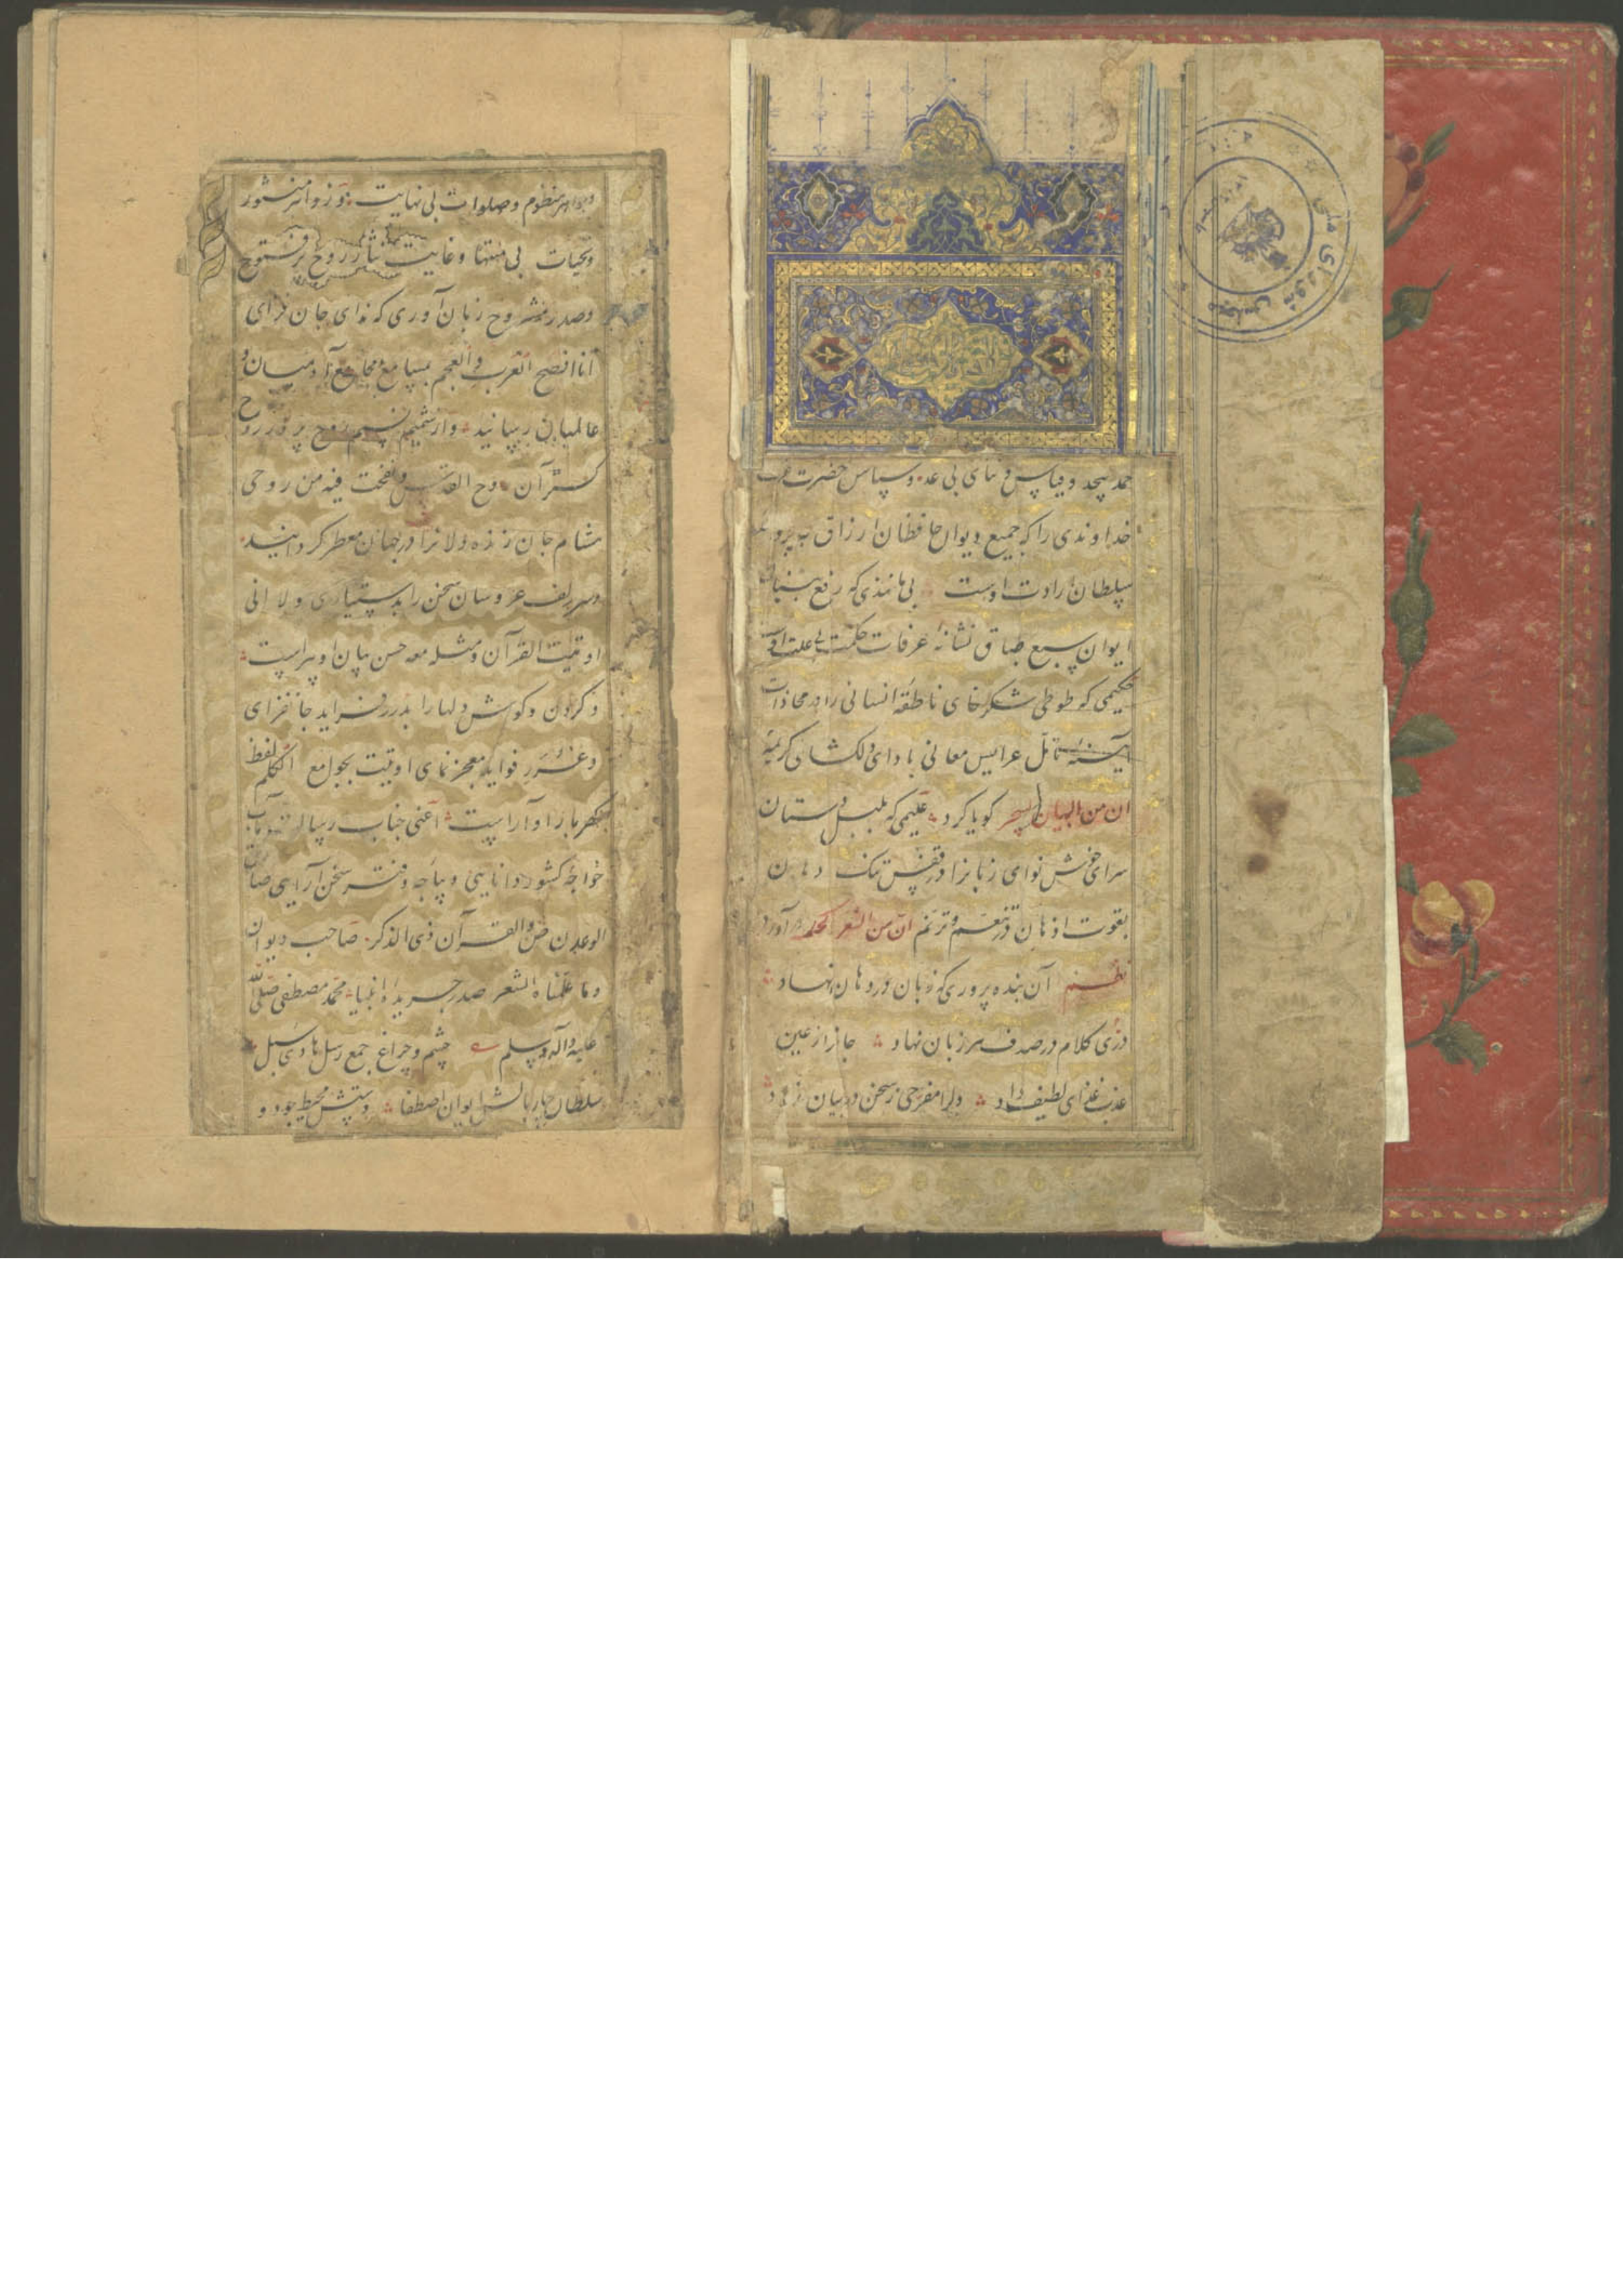 حمد بیحد و قیاس و ثنای بی عد و سپاس حضرت
خداوندی را که جمیع دیوان حافظان ارزاق به پروانه
سلطان ارادت اوست بی مانندی که رفع بنیان
ایوان سبع طباق نشانه عرفات حکمت بی علت اوست
حکیمی که طوطی شکرخای ناطقه انسانی را در محاذات
آینه تامل عرایس معانی بادای دلکشای کریمه
ان من البیان لسحر کویا کرد علیمی که بلبل دستان
سرای خوش نوای زبانرا در قفس تنک دهان
بقوت اذهان در تنغم و ترنم ان من الشعر لحکمة در آورد
نظم آن بنده پروری که زبان در دهان نهاد
در کلام در صدف سر زبان نهاد جانرا ز عین
عذب غذای لطیف داد دلرا مفرحی ز سخن در بیان نهاد
و جواهر منظوم و صلوات بی نهایت و زواهر منثور
و تحیات بی منتها و غایت نثار روح پر فتوح
و صدر مشروح زبان آوری که ندای جان فزای
انا افصح العرب و العجم بمسامع مجامع آدمیان و
عالمیان رسانید و از شمیم نسیم روح پرور روح
کستر آن روح القدس و نفخت فیه من روحی
مشام جان زنده دلانرا در جهان معطر کردانید
و سر زلف عروسان سخن را بدستیاری و لا انی
اوتیت القرآن و مثله معه حسن بیان او پیراست
و کردن و کوش دلها را بدرر فراید جانفزای
و غرر فواید معجز نمای اوتیت بجوامع الکلم لفظ
کهربار او آراست اعنی جناب رسالت مآب
خواجه کشور دانایی دیباجه دفتر سخن آرایی صادق
الوعد ص و القرآن ذی الذکر صاحب دیوان
و ما علمناه الشعر صدر جریده انبیا محمد مصطفی صلی الله
علیه و آله و سلم چشم و چراغ جمع رسل هادی سبل
سلطان چار بالش ایوان اصطفا دستش محیط جود و